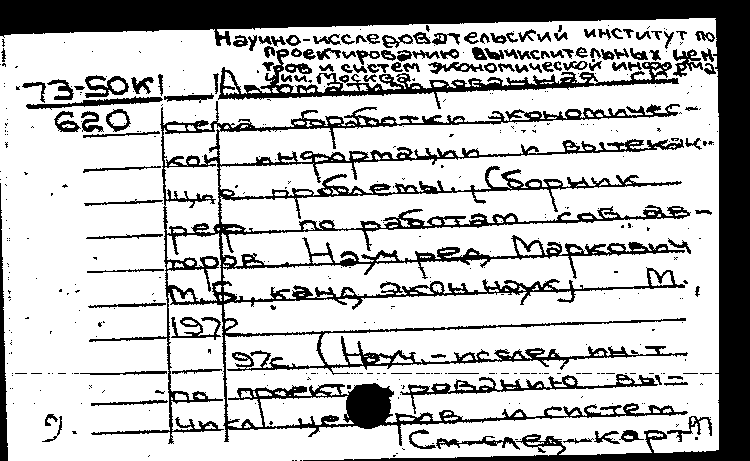 Научно-исследовательский институт по
проектированию вычислительных цен-
тров и систем экономической информа-
ции. Москва.
73-50К Автоматизированная си-
620 стема обработки экономичес-
кой информации и вытекаю-
щие проблемы. Сборник
реф. по работам сов. ав-
торов. Науч. ред. Маркович
М.Б., канд. экон. наук. М.,
1972
97с. (Науч.-исслед. ин-т
по проектированию вы-
числ. центров и систем
См. след. карт.